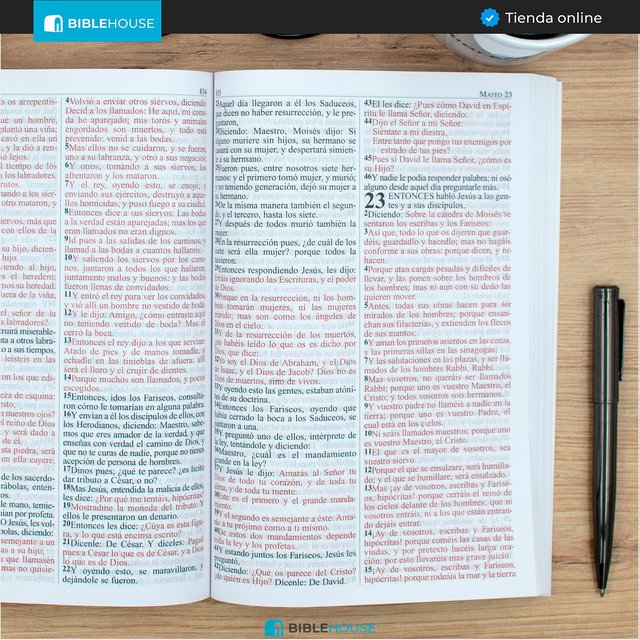 BIBLEHOUSE
Tienda online
834
4Volvió a enviar otros siervos, diciendo:
Decid a los llamados: He aquí, mi comi-
da he aparejado; mis toros y animales
engordados son muertos, y todo está
prevenido: venid a las bodas.
5Mas ellos no se cuidaron, y se fueron,
uno a su labranza, y otro a sus negocios;
6Y otros, tomando a sus siervos, los
afrentaron y los mataron.
7Y el rey, oyendo esto, se enojó; y
enviando sus ejércitos, destruyó a aque-
llos homicidas, y puso fuego a su ciudad.
8Entonces dice a sus siervos: Las bodas
a la verdad están aparejadas; mas los que
eran llamados no eran dignos.
9Id pues a las salidas de los caminos, y
llamad a las bodas a cuantos hallareis.
10Y saliendo los siervos por los cami-
nos, juntaron a todos los que hallaron,
juntamente malos y buenos: y las bodas
fueron llenas de convidados.
11Y entró el rey para ver los convidados,
y vió allí un hombre no vestido de boda.
12Y le dijo: Amigo, ¿cómo entraste aquí
no teniendo vestido de boda? Mas él
cerró la boca.
13Entonces el rey dijo a los que servían:
Atado de pies y de manos tomadle, y
echadle en las tinieblas de afuera: allí
será el lloro y el crujir de dientes.
14Porque muchos son llamados, y pocos
escogidos.
15Entonces, idos los Fariseos, consulta-
ron cómo le tomarían en alguna palabra.
16Y envían a él los discípulos de ellos, con
los Herodianos, diciendo: Maestro, sabe-
mos que eres amador de la verdad, y que
enseñas con verdad el camino de Dios, y
que no te curas de nadie, porque no tienes
acepción de persona de hombres.
17Dinos pues, ¿qué te parece? ¿es lícito
dar tributo a César, o no?
18Mas Jesús, entendida la malicia de ellos,
les dice: ¿Por qué me tentáis, hipócritas?
19Mostradme la moneda del tributo. Y
ellos le presentaron un denario.
20Entonces les dice: ¿Cúya es esta figu-
ra, y lo que está encima escrito?
21Dicenle: De César. Y díceles: Pagad
pues a César lo que es de César, y a Dios
lo que es de Dios.
22Y oyendo esto, se maravillaron, y
dejándole se fueron.
Aquel día llegaron a él los Saduceos,
que dicen no haber resurrección, y le pre-
guntaron,
Diciendo: Maestro, Moisés dijo: Si
alguno muriere sin hijos, su hermano se
casará con su mujer, y despertará simien-
te a su hermano.
Fueron pues, entre nosotros siete her-
manos: y el primero tomó mujer, y murió;
y no teniendo generación, dejó su mujer a
su hermano.
De la misma manera también el segun-
do, y el tercero, hasta los siete.
Y después de todos murió también la
mujer.
En la resurrección pues, ¿de cuál de los
siete será ella mujer? porque todos la
tuvieron.
Entonces respondiendo Jesús, les dijo:
Erráis ignorando las Escrituras, y el poder
de Dios.
Porque en la resurrección, ni los hom-
bres tomarán mujeres, ni las mujeres
marido; mas son como los ángeles de
Dios en el cielo.
Y de la resurrección de los muertos,
¿no habéis leído lo que os es dicho por
Dios, que dice:
Yo soy el Dios de Abraham, y el Dios
de Isaac, y el Dios de Jacob? Dios no es
Dios de muertos, sino de vivos.
Y oyendo esto las gentes, estaban atóni-
tas de su doctrina.
Entonces los Fariseos, oyendo que
había cerrado la boca a los Saduceos, se
juntaron a una.
Y preguntó uno de ellos, intérprete de
la ley, tentándole y diciendo:
Maestro, ¿cuál es el mandamiento
grande en la ley?
Y Jesús le dijo: Amarás al Señor tu
Dios de todo tu corazón, y de toda tu
alma, y de toda tu mente.
Este es el primero y el grande manda-
miento.
Y el segundo es semejante a éste: Ama-
rás a tu prójimo como a ti mismo.
De estos dos mandamientos depende
toda la ley y los profetas.
Y estando juntos los Fariseos, Jesús les
preguntó,
Diciendo: ¿Qué os parece del Cristo?
¿de quién es Hijo? Dícenle: De David.
MATEO 23
43Él les dice: ¿Pues cómo David en Espí-
ritu le llama Señor, diciendo:
44Dijo el Señor a mi Señor:
Siéntate a mi diestra,
Entre tanto que pongo tus enemigos por
estrado de tus pies?
45Pues si David le llama Señor, ¿cómo es
su Hijo?
46Y nadie le podía responder palabra; ni osó
alguno desde aquel día preguntarle más.
23 ENTONCES habló Jesús a las gen-
tes y a sus discípulos,
2Diciendo: Sobre la cátedra de Moisés se
sentaron los escribas y los Fariseos:
3Así que, todo lo que os dijeren que guar-
déis, guardadlo y hacedlo; mas no hagáis
conforme a sus obras: porque dicen, y no
hacen.
4Porque atan cargas pesadas y difíciles de
llevar, y las ponen sobre los hombros de
los hombres; mas ni aun con su dedo las
quieren mover.
5Antes, todas sus obras hacen para ser
mirados de los hombres; porque ensan-
chan sus filacterias, y extienden los flecos
de sus mantos;
6Y aman los primeros asientos en las cenas,
y las primeras sillas en las sinagogas;
7Y las salutaciones en las plazas, y ser lla-
mados de los hombres Rabbí, Rabbí.
8Mas vosotros, no queráis ser llamados
Rabbí; porque uno es vuestro Maestro, el
Cristo; y todos vosotros sois hermanos.
9Y vuestro padre no llaméis a nadie en la
tierra; porque uno es vuestro Padre, el
cual está en los cielos.
10Ni seáis llamados maestros; porque uno
es vuestro Maestro, el Cristo.
11El que es el mayor de vosotros, sea
vuestro siervo.
12Porque el que se ensalzare, será humilla-
do; y el que se humillare, será ensalzado.
13Mas ¡ay de vosotros, escribas y Farise-
os, hipócritas! porque cerráis el reino de
los cielos delante de los hombres; que ni
vosotros entráis, ni a los que están entran-
do dejáis entrar.
14¡Ay de vosotros, escribas y Fariseos,
hipócritas! porque coméis las casas de las
viudas, y por pretexto hacéis larga ora-
ción: por esto llevaréis más grave juicio.
15¡Ay de vosotros, escribas y Fariseos,
hipócritas! porque rodeáis la mar y la tierra
BIBLEHOUSE